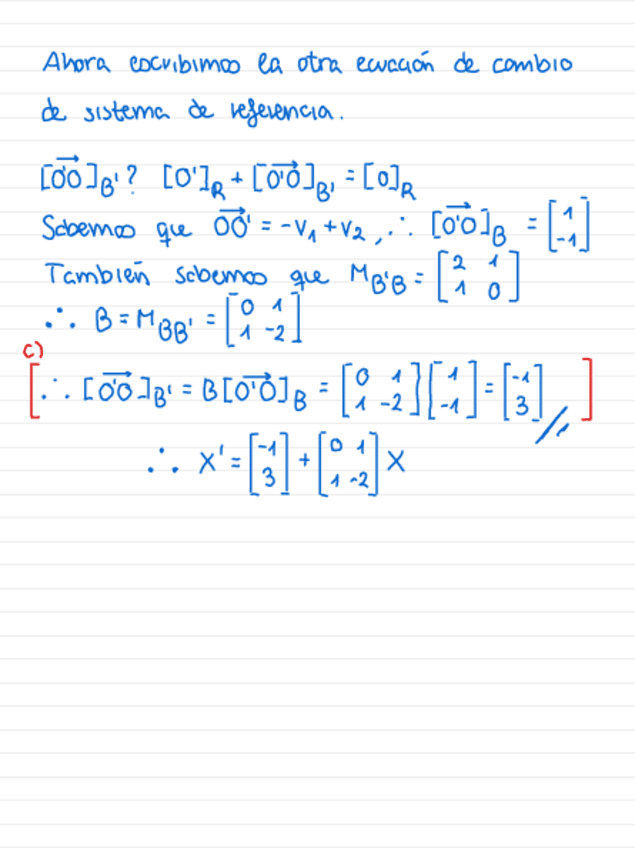 Ahora escribimos la otra ecuación de cambio
de sistema de referencia.
[$\overrightarrow{O'O}$]_{B'}? [O']_R + [$\overrightarrow{O'O}$]_{B'} = [O]_R
Sabemos que $\overrightarrow{OO'}$ = -v_1 + v_2, ∴ [$\overrightarrow{O'O}$]_B = \begin{bmatrix} 1 \\ -1 \end{bmatrix}
También sabemos que M_{B'B} = \begin{bmatrix} 2 & 1 \\ 1 & 0 \end{bmatrix}
∴ B = M_{BB'} = \begin{bmatrix} 0 & 1 \\ 1 & -2 \end{bmatrix}
c)
[∴ [$\overrightarrow{O'O}$]_{B'} = B[$\overrightarrow{O'O}$]_B = \begin{bmatrix} 0 & 1 \\ 1 & -2 \end{bmatrix} \begin{bmatrix} 1 \\ -1 \end{bmatrix} = \begin{bmatrix} -1 \\ 3 \end{bmatrix} // ]
∴ X' = \begin{bmatrix} -1 \\ 3 \end{bmatrix} + \begin{bmatrix} 0 & 1 \\ 1 & -2 \end{bmatrix} X